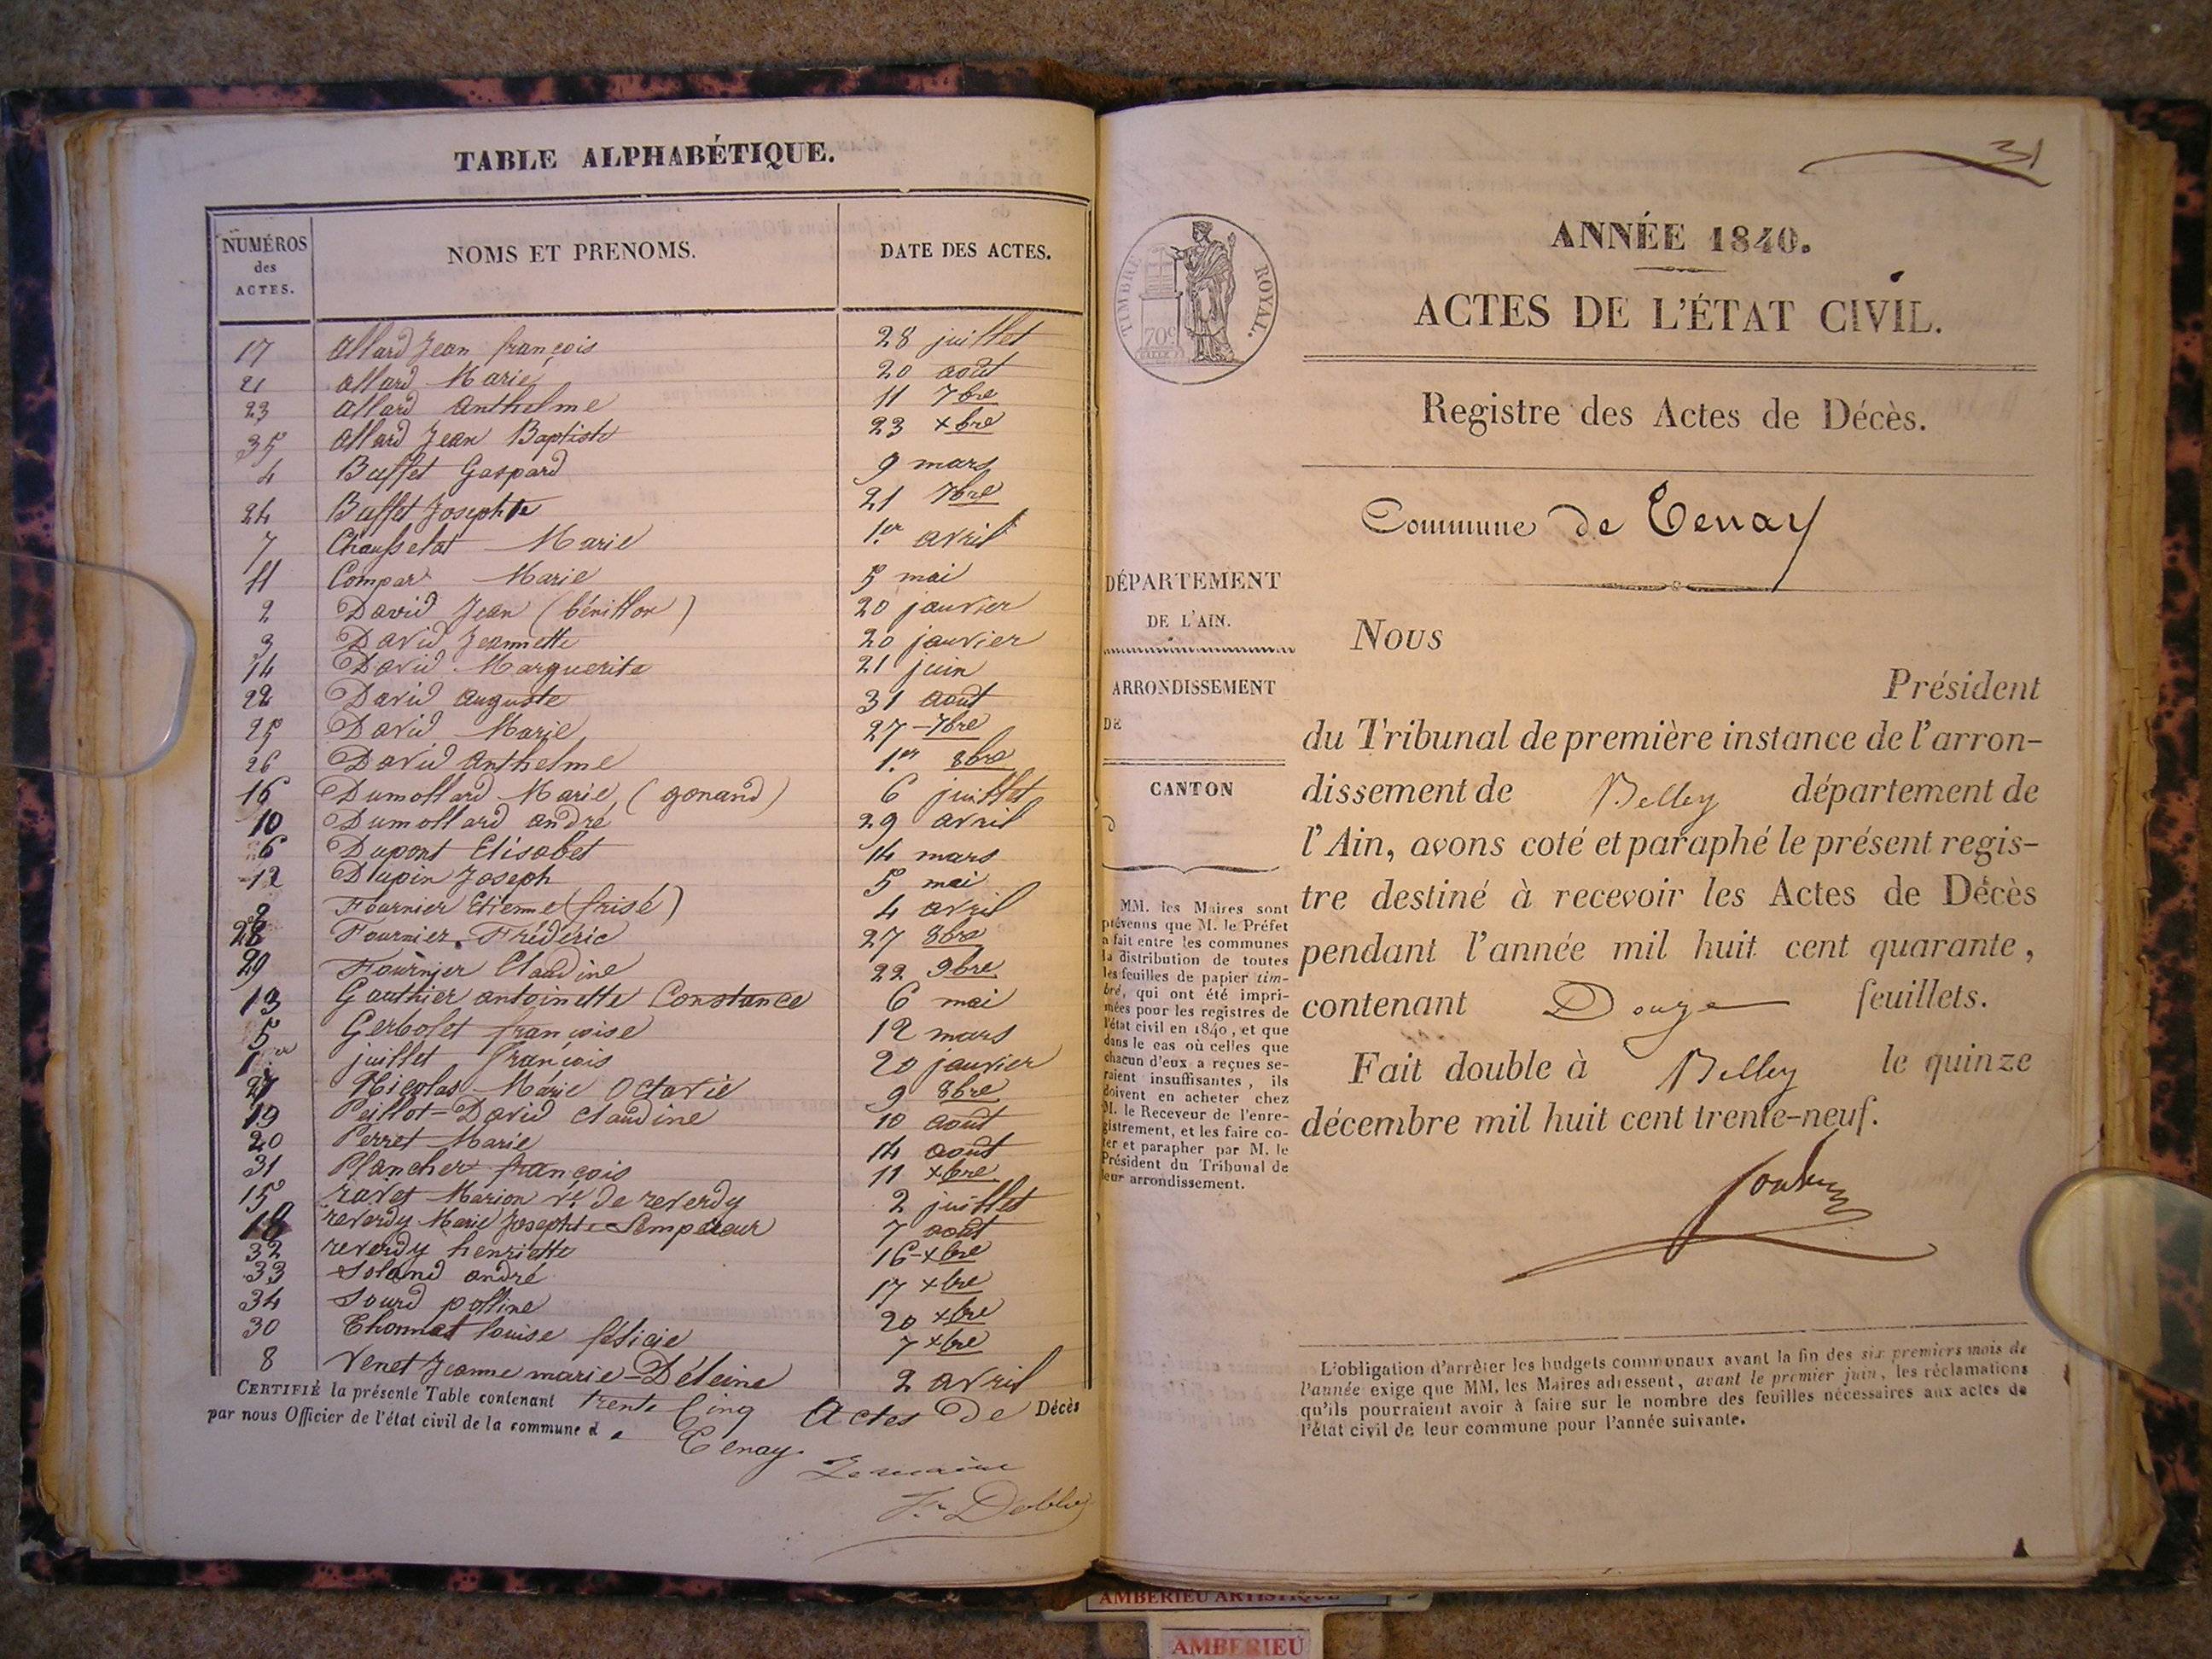 TABLE ALPHABÉTIQUE.
NUMÉROS des ACTES. NOMS ET PRENOMS. DATE DES ACTES.
17 allard Jean françois 28 juillet
21 allard Marie 20 août
23 allard anthelme 11 7bre
35 allard Jean Baptiste 23 xbre
4 Buffet Gaspard 9 mars
24 Buffet Josephte 21 7bre
7 Marie 1.er avril
11 Compar Marie 5 mai
2 David Jean (bénillon) 20 janvier
3 David Jeannette 20 janvier
14 David Marguerite 21 juin
22 David auguste 31 août
25 David Marie 27 7bre
26 David anthelme 1.er 8bre
16 Dumollard Marie (gonand) 6 juillet
10 Dumollard andré 29 avril
6 Dupont Elisabet 14 mars
12 Dupin Joseph 5 mai
9 Fournier Etienne (frisé) 4 avril
28 Fournier Frédéric 27 8bre
29 Fournier Claudine 22 9bre
13 Gauthier antoinette Constance 6 mai
5 Gerbolet françoise 12 mars
1.er juillet françois 20 janvier
27 Nicolas Marie Octavie 9 8bre
19 Peillot=David claudine 10 août
20 Perret Marie 14 août
31 Plancher françois 11 xbre
15 ravet Marion ve de reverdy 2 juillet
18 reverdy Marie Josephte Sempereur 7 août
32 reverdy henriette 16 xbre
33 Soland andré 17 xbre
34 Sourd polline 20 xbre
30 Thonnet louise félicie 7 xbre
8 Venet Jeanne marie=Déleine 2 avril
CERTIFIÉ la présente Table contenant trente Cinq Actes De Décès
par nous Officier de l'état civil de la commune de Tenay.
31
TIMBRE ROYAL.
70c
ANNÉE 1840.
ACTES DE L'ÉTAT CIVIL.
Registre des Actes de Décès.
Commune de Tenay
DÉPARTEMENT
DE L'AIN.
ARRONDISSEMENT
DE
CANTON
MM. les Maires sont
prévenus que M. le Préfet
a fait entre les communes
la distribution de toutes
les feuilles de papier tim-
bré, qui ont été impri-
mées pour les registres de
l'état civil en 1840, et que
dans le cas où celles que
chacun d'eux a reçues se-
raient insuffisantes, ils
doivent en acheter chez
M. le Receveur de l'enre-
gistrement, et les faire co-
ter et parapher par M. le
Président du Tribunal de
leur arrondissement.
Nous
Président
du Tribunal de première instance de l'arron-
dissement de Belley département de
l'Ain, avons coté et paraphé le présent regis-
tre destiné à recevoir les Actes de Décès
pendant l'année mil huit cent quarante,
contenant Douze feuillets.
Fait double à Belley le quinze
décembre mil huit cent trente-neuf.
L'obligation d'arrêter les budgets communaux avant la fin des six premiers mois de
l'année exige que MM. les Maires adressent, avant le premier juin, les réclamations
qu'ils pourraient avoir à faire sur le nombre des feuilles nécessaires aux actes de
l'état civil de leur commune pour l'année suivante.
AMBERIEU ARTISTIQUE
AMBERIEU